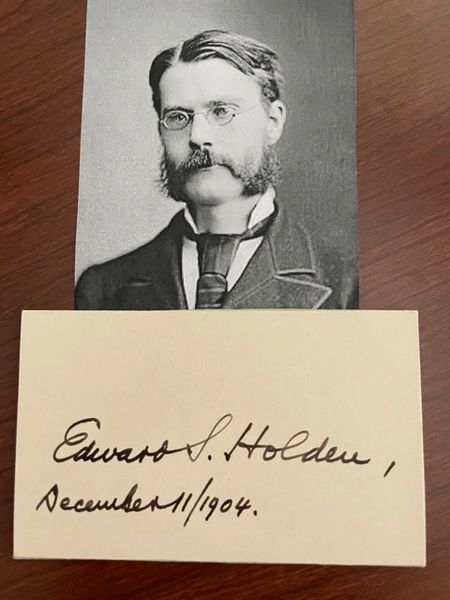 Edward S. Holden,
December 11/1904.